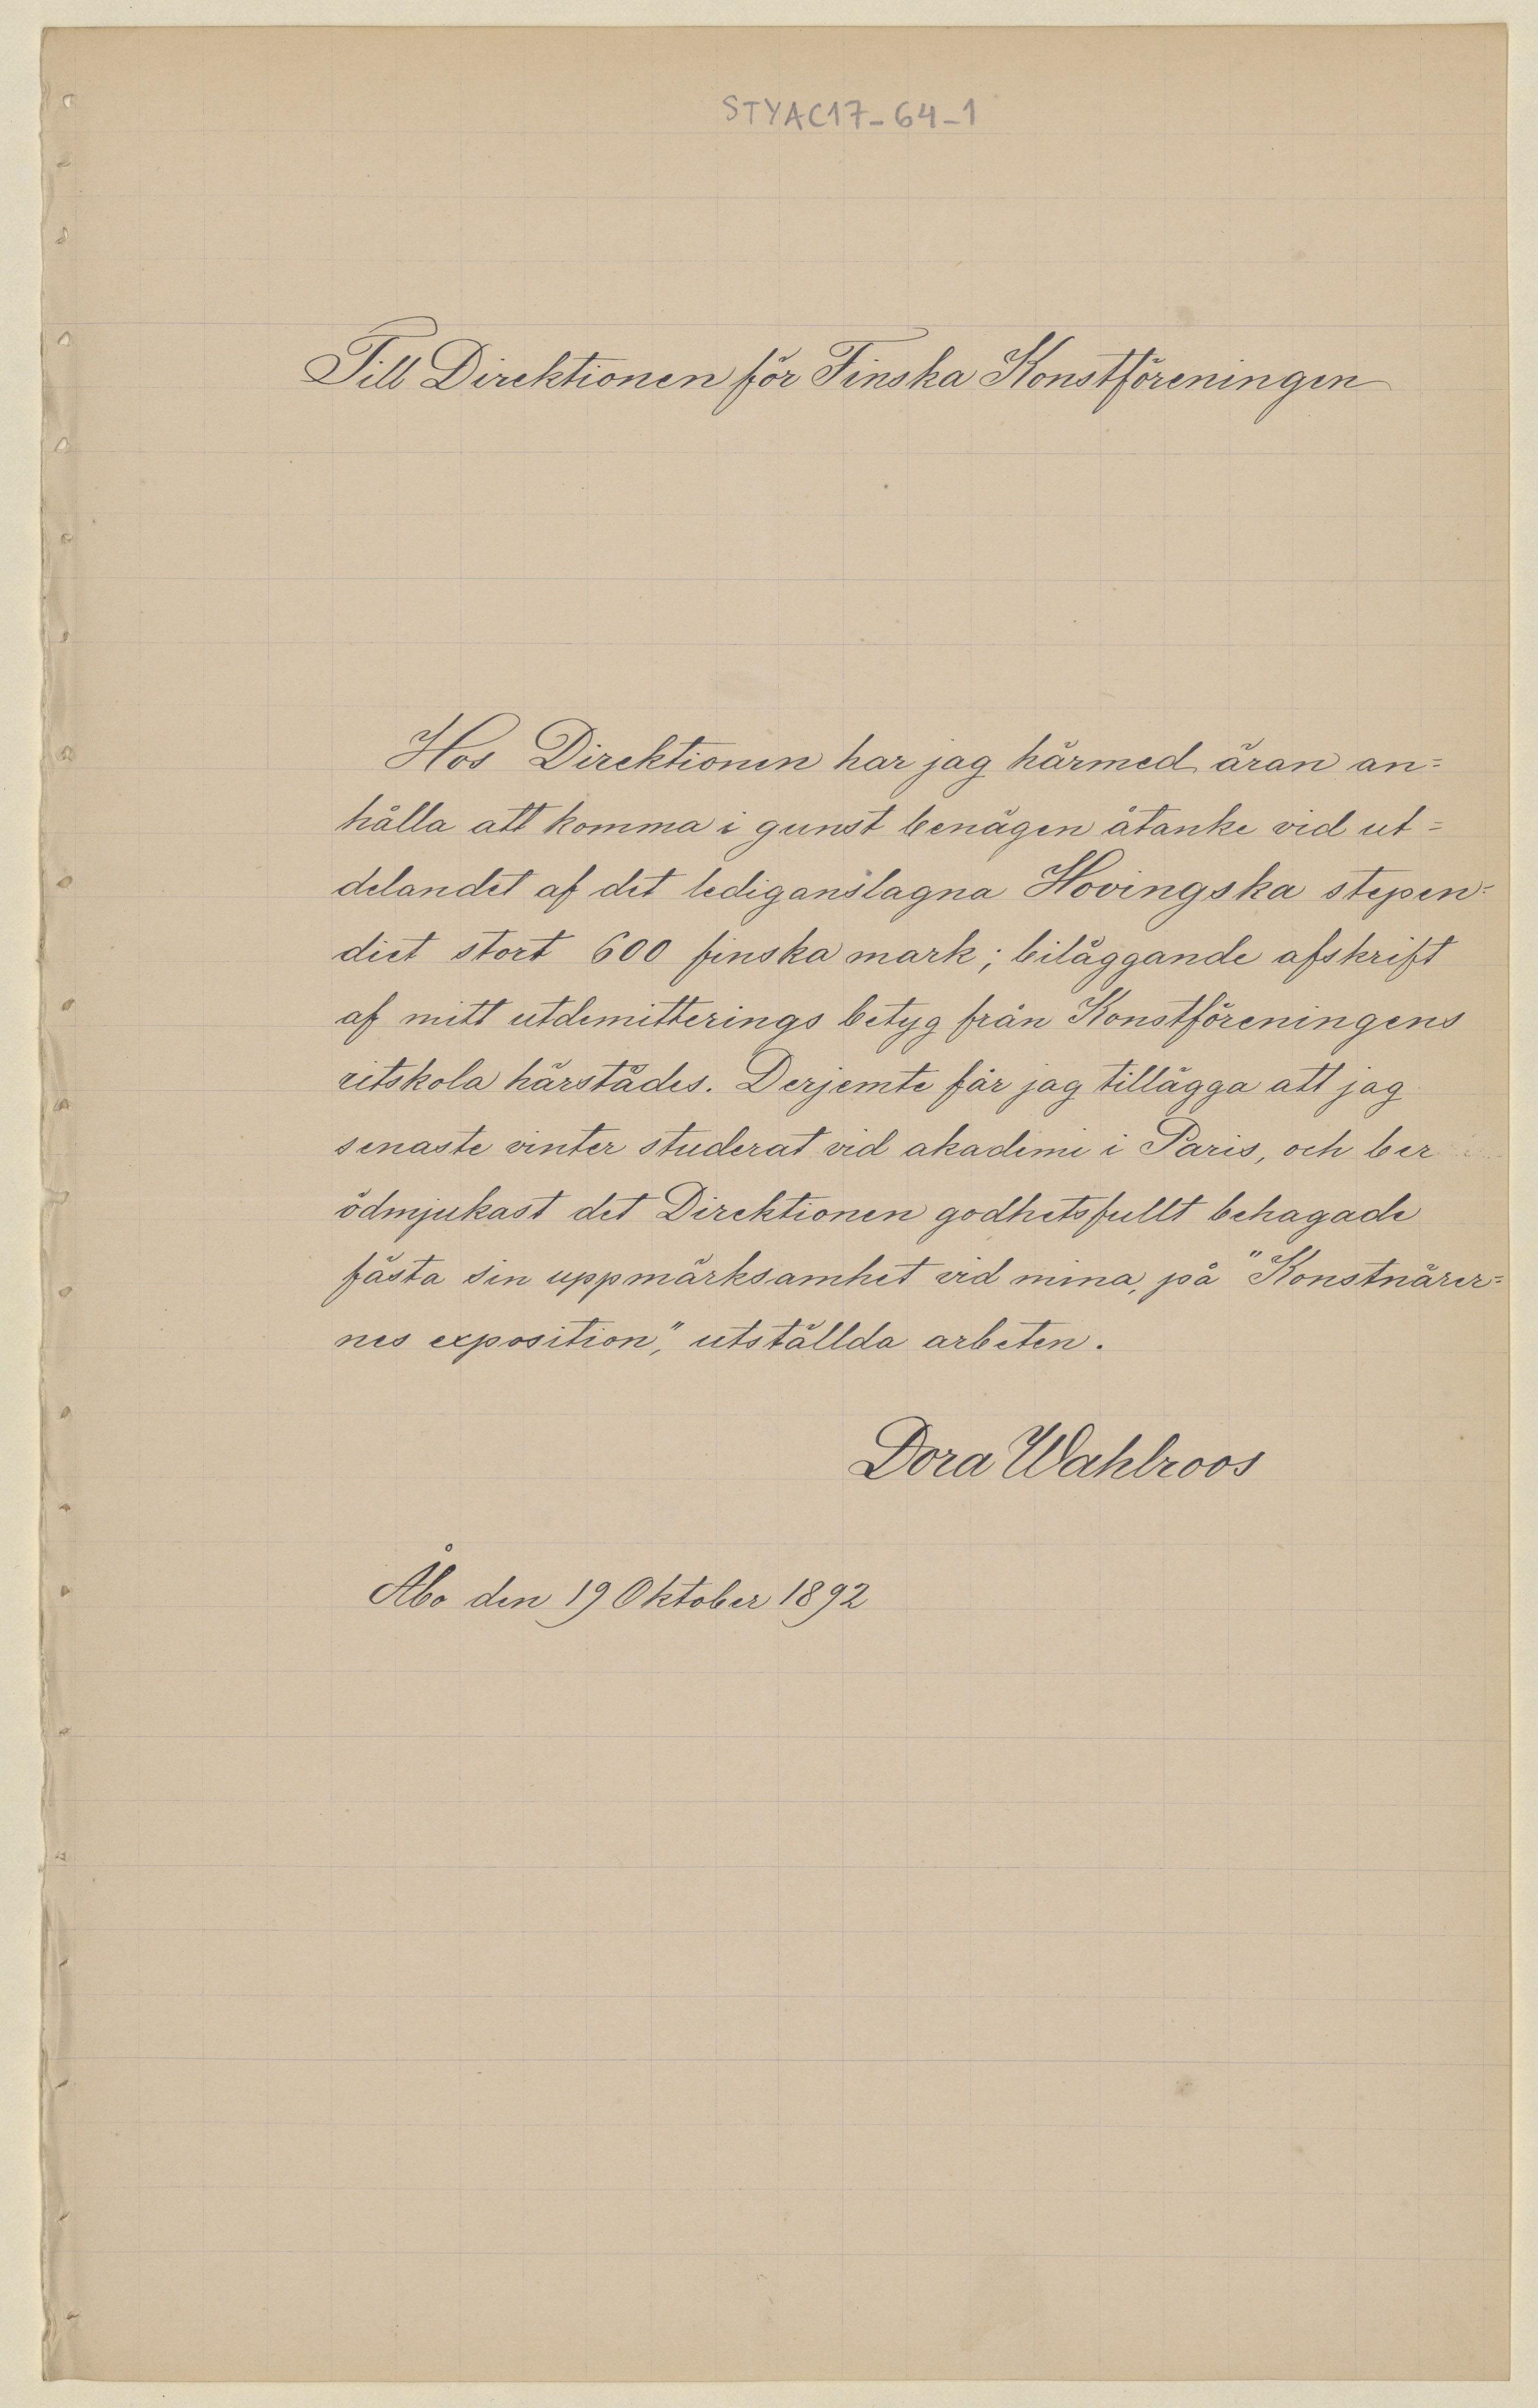 STYAC17-64-1
Till Direktionen för Finska Konstföreningen
Hos Direktionen har jag härmed äran an=
hålla att komma i gunst benägen åtanke vid ut=
delandet af det lediganslagna Hovingska stepen=
diet stort 600 finska mark; biläggande afskrift
af mitt utdemitterings betyg från Konstföreningens
ritskola härstädes. Derjemte får jag tillägga att jag
senaste vinter studerat vid akademi i Paris, och ber
ödmjukast det Direktionen godhetsfullt behagade
fästa sin uppmärksamhet vid mina, på "Konstnärer=
nes exposition", utställda arbeten.
Dora Wahlroos
Åbo den 19 Oktober 1892